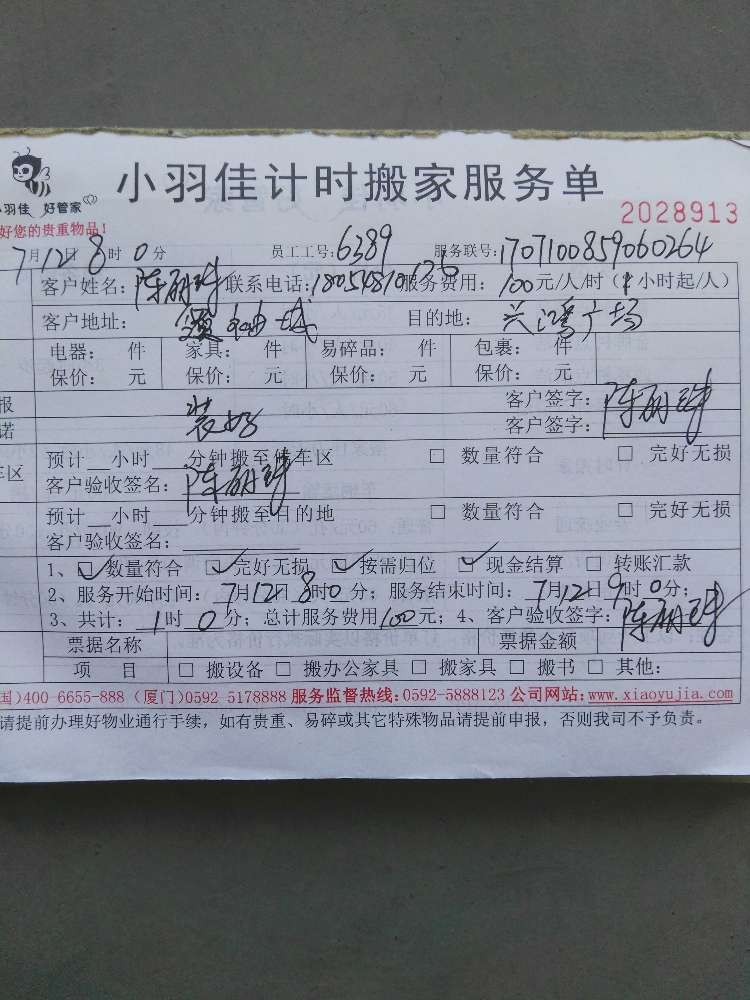 小羽佳计时搬家服务单
小羽佳 好管家
2028913
好您的贵重物品!
7月12日8时0分 员工工号:6389 服务联号:170710085906026​4
客户姓名:陈丽 联系电话: 服务费用:100元/人/时(1小时起/人)
客户地址: 城 目的地:兴鸿广场
电器: 件 家具: 件 易碎品: 件 包裹: 件
保价: 元 保价: 元 保价: 元 保价: 元
报 装好 客户签字:陈丽
诺 客户签字:
预计__小时___分钟搬至停车区 □ 数量符合 □ 完好无损
车区 客户验收签名:陈丽
预计__小时___分钟搬至目的地 □ 数量符合 □ 完好无损
客户验收签名:
1、☑数量符合 ☑完好无损 ☑按需归位 ☑现金结算 □ 转账汇款
2、服务开始时间:7月12日8时0分;服务结束时间:7月12日9时0分;
3、共计:1时0分;总计服务费用100元;4、客户验收签字:陈丽
票据名称 票据金额
项 目 □ 搬设备 □ 搬办公家具 □ 搬家具 □ 搬书 □ 其他:
国)400-6655-888 (厦门)0592 5178888 服务监督热线:0592-5888123 公司网站:www.xiaoyujia.com
请提前办理好物业通行手续,如有贵重、易碎或其它特殊物品请提前申报,否则我司不予负责。